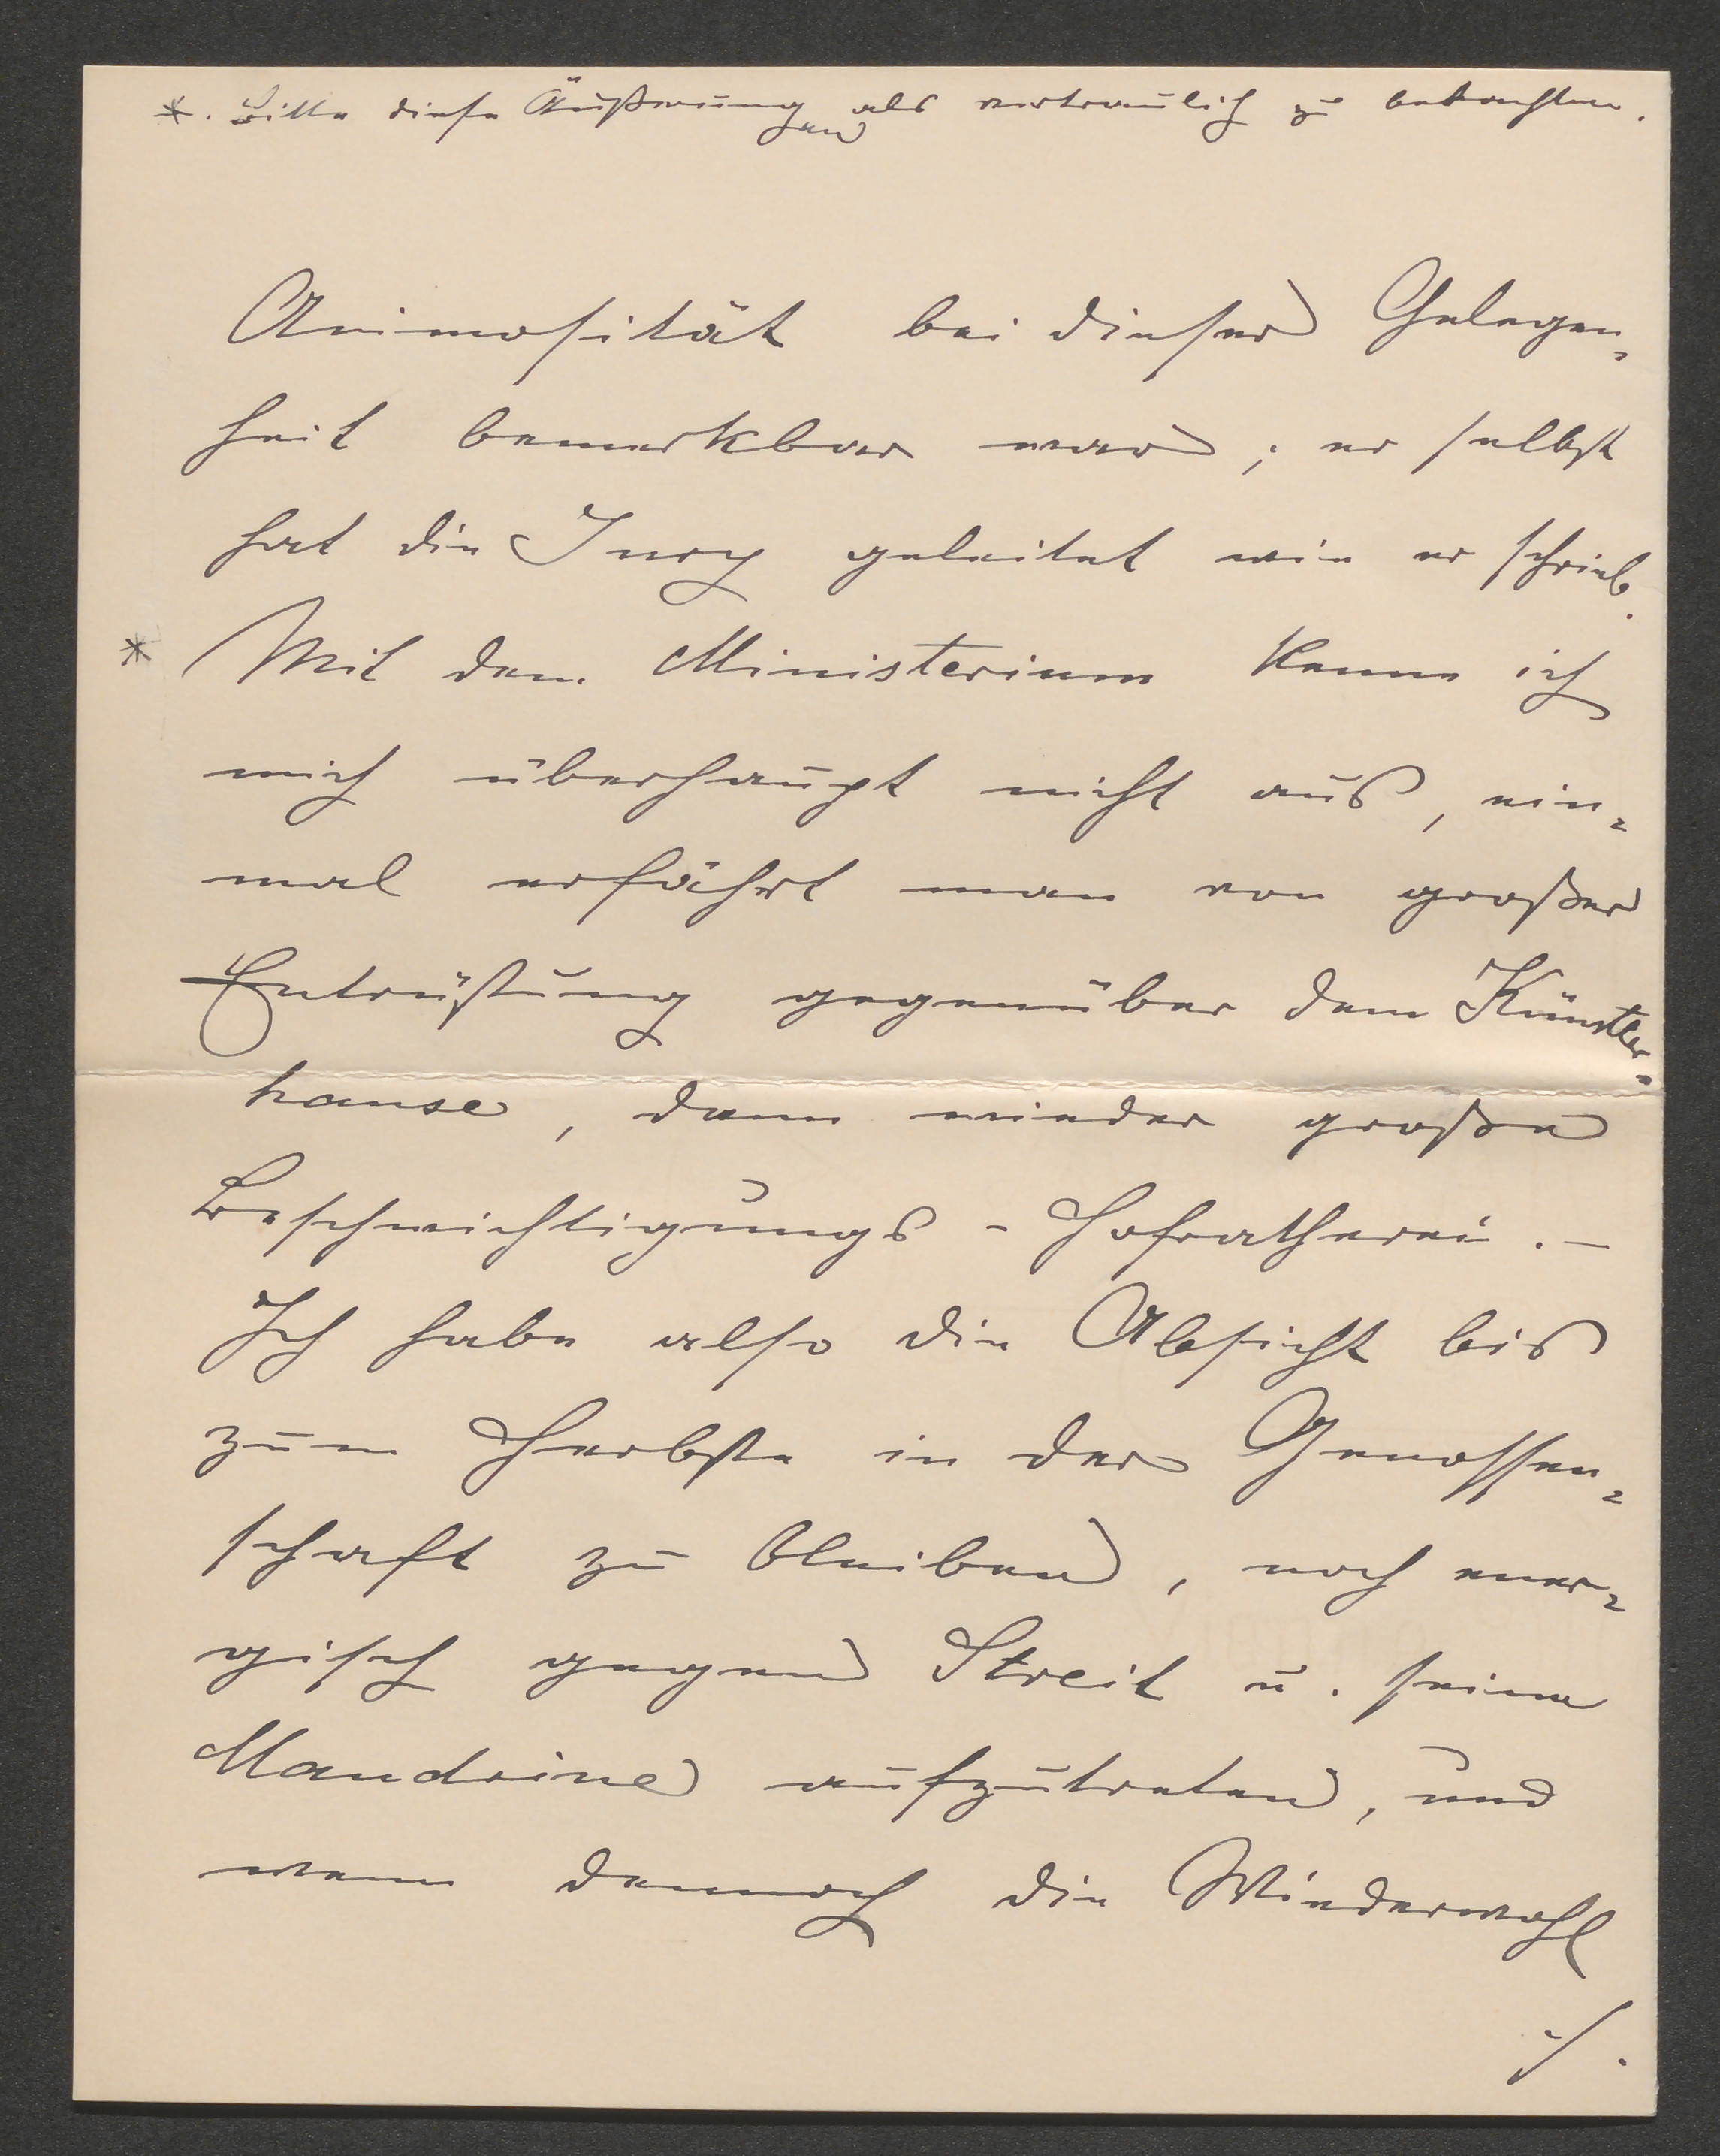 *. Bitte diese Äußerungen als vertraulich zu betrachten.
Animosität bei dieser Gelegen-
heit bemerkbar war; er selbst
hat die Jury geleitet wie er schrieb.
* Mit dem Ministerium kenne ich
mich überhaupt nicht aus, ein-
mal erfährt man von großer
Entrüstung gegenüber dem Künstler-
hause, dann wieder große
Beschwichtigungs-Hofratherei. –
Ich habe also die Absicht bis
zum Herbste in der Genossen-
schaft zu bleiben, noch ener-
gisch gegen Streit u. seine
Mandrine aufzutreten, und
wenn dennoch die Wiederwahl
./.